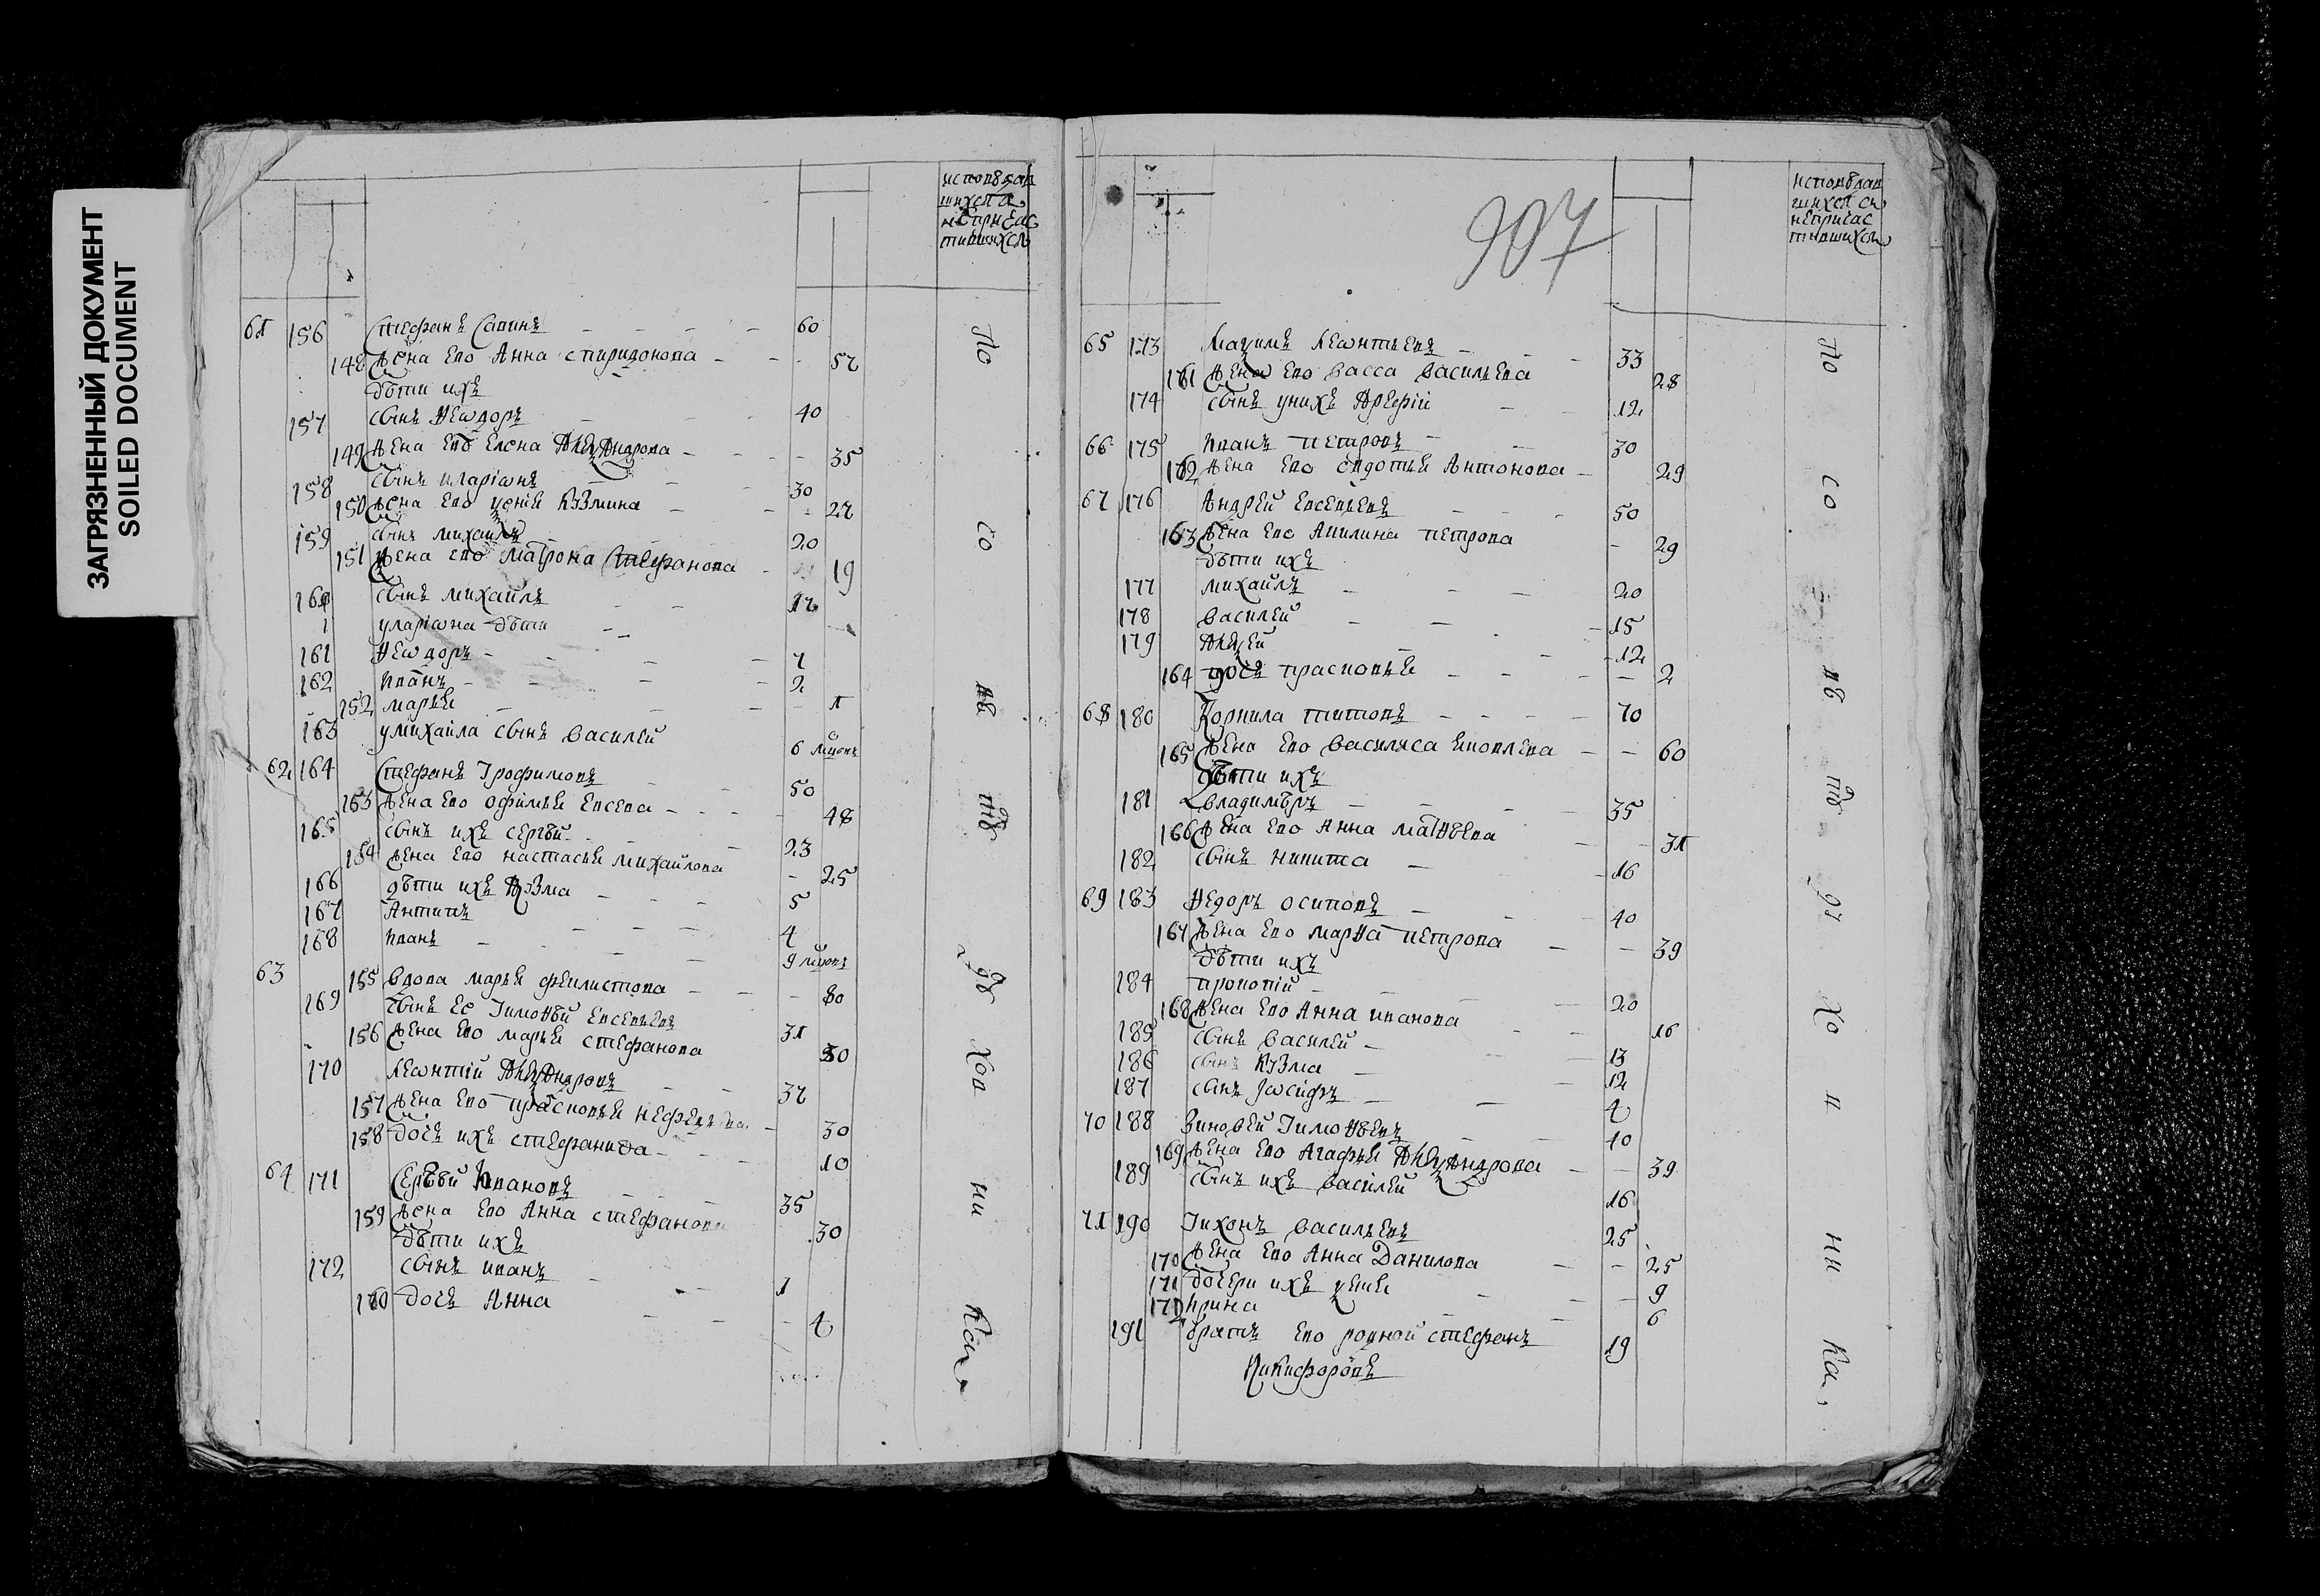 ЗАГРЯЗНЕННЫЙ ДОКУМЕНТ
SOILED DOCUMENT
исповѣдав
шихся а
непричас
тившихся
61 156 Стефанъ Савинъ 60
148 жена ево Анна спиридонова 57
дѣти ихъ
157 сынъ Ѳеѡдоръ 40
149 жена ево Елена Алеѯандрова 35
158 сынъ иларіѡнъ 30
150 жена ево ѯенія Кузмина 27
159 сынъ михаилъ 20
151 жена ево матрона Стефанова 19
160 сынъ михаилъ 17
у ларіѡна дѣти
161 Ѳеѡдоръ 7
162 иванъ 2
152 марья 1
163 у михаила сынъ василей 6 мцовъ
62 164 Стефанъ Трофимовъ 50
153 жена ево офимья Евсева 48
165 сынъ ихъ сергѣй 23
154 жена ево настасья михайлова 25
166 дѣти ихъ Кузма 5
167 Антипъ 4
168 иванъ 9 мцовъ
63 155 вдова марья филистова 80
169 сынъ ее Тимоѳѣй Евсевьевъ 31
156 жена ево марья стефанова 30
170 Леѡнтій Алеѯандровъ 37
157 жена ево прасковья 30
158 дочь ихъ стефанида 10
64 171 Сергѣй Ивановъ 35
159 жена ево Анна стефанова 30
дѣти ихъ
172 сынъ иванъ 1
160 дочь Анна 4
По со въ тѣ дѣ хов ни ки
907
исповѣдав
шихся а
непричас
тившихся
65 173 Маѯимъ Леѡнтьевъ 33
161 жена ево васса васильева 28
174 сынъ у нихъ Арефій 12
66 175 иванъ петровъ 30
162 жена ево овдотья Антонова 29
67 176 Андрей Евсевьевъ 50
163 жена ево Акилина петрова 29
дѣти ихъ
177 михайлъ 20
178 василей 15
179 Алеѯей 12
164 дочь прасковья 2
68 180 Корнила титовъ 70
165 жена ево василиса яковлева 60
дѣти ихъ
181 владимѣръ 35
166 жена ево Анна матѳѣева 31
182 сынъ никита 16
69 183 Ѳедоръ осиповъ 40
167 жена ево марѳа петрова 39
дѣти ихъ
184 прокопій 20
168 жена ево Анна иванова 16
185 сынъ василей 13
186 сынъ Кузма 12
187 сынъ Іѡсифъ 4
70 188 Зиновей Тимоѳѣевъ 40
169 жена ево Агафья Алеѯандрова 39
189 сынъ ихъ василей 16
71 190 Тихонъ васильевъ 25
170 жена ево Анна Данилова 25
171 дочери ихъ ѯения 9
172 ирина 6
191 братъ ево родной стефанъ 19
Никифоровъ